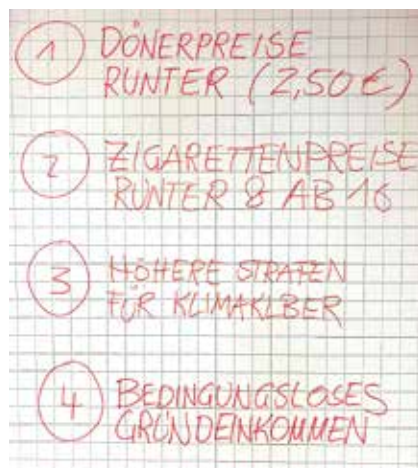 1 DÖNERPREISE
RUNTER (2,50€)
2 ZIGARETTENPREISE
RUNTER & AB 16
3 HÖHERE STRAFEN
FÜR KLIMAKLBER
4 BEDINGUNGSLOSES
GRUNDEINKOMMEN